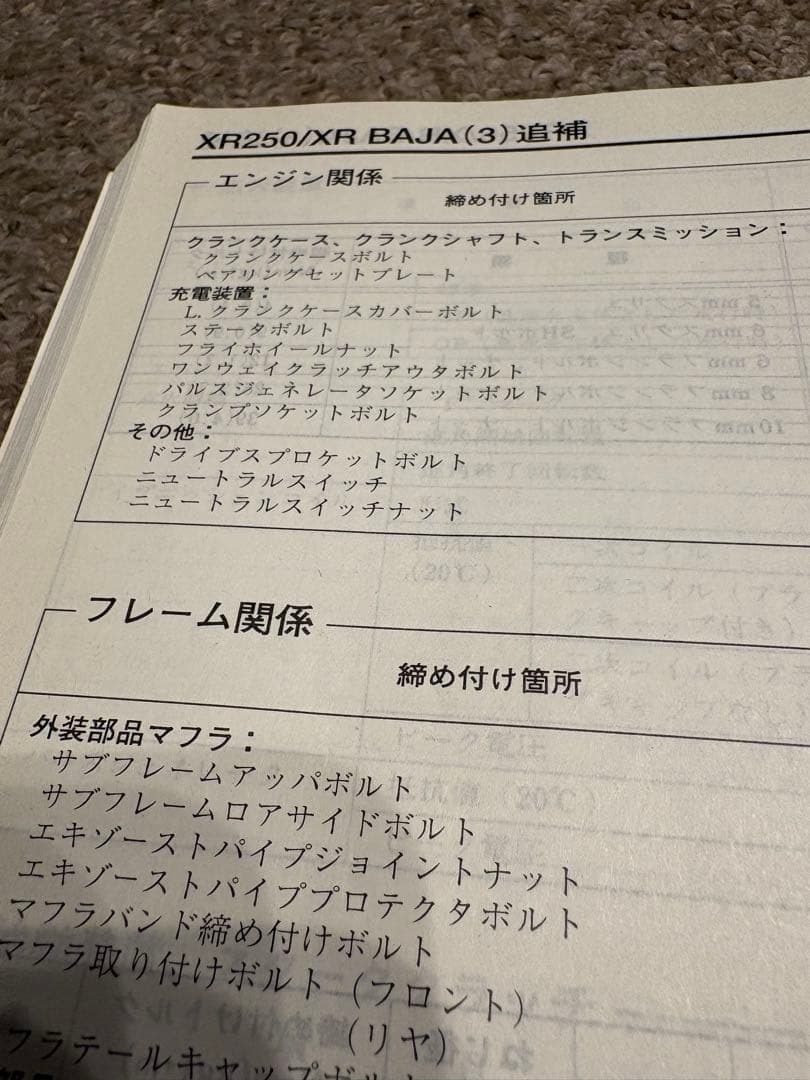 XR250/XR BAJA(3)追補
エンジン関係
締め付け箇所
クランクケース、クランクシャフト、トランスミッション：
クランクケースボルト
ベアリングセットプレート
充電装置：
L. クランクケースカバーボルト
ステータボルト
フライホイールナット
ワンウェイクラッチアウタボルト
パルスジェネレータソケットボルト
クランプソケットボルト
その他：
ドライブスプロケットボルト
ニュートラルスイッチ
ニュートラルスイッチナット
フレーム関係
締め付け箇所
外装部品マフラ：
サブフレームアッパボルト
サブフレームロアサイドボルト
エキゾーストパイプジョイントナット
エキゾーストパイププロテクタボルト
マフラバンド締め付けボルト
マフラ取り付けボルト（フロント）
（リヤ）
フラテールキャップボルト